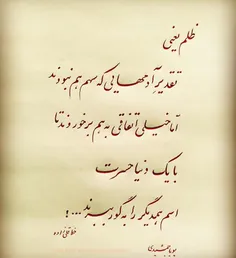 ظلم یعنی
تقدیرِ آدمهایی که سهم هم نبودند
امّا خیلی اتفاقی به هم برخوردند تا
با یک دنیا حسرت
اسم همدیگر را به گور ببرند...!
پویا جمشیدی